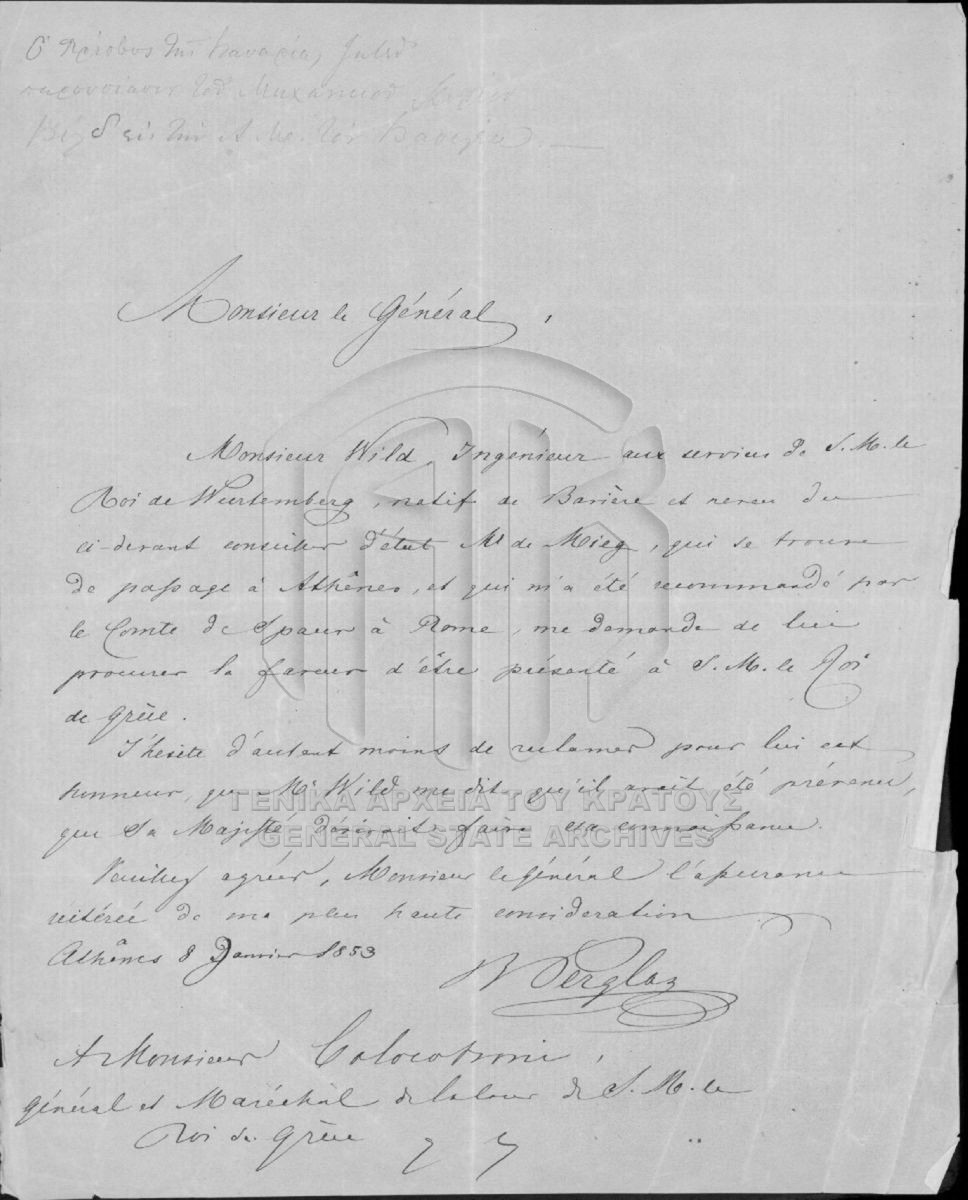 Ὁ Πρέσβυς τῆς Βαυαρίας ζητεῖ
παρουσίασιν τοῦ Μηχανικοῦ Κυρίου
Βίλδ εἰς τὴν Α. Μ. τὸν Βασιλέα.
Monsieur le Général,
Monsieur Wild, Ingénieur aux services de S. M. le
Roi de Wurtemberg, natif de Bavière et neveu du
ci-devant conseiller d'état Mr. de Mieg, qui se trouve
de passage à Athênes, et qui m'a été recommandé par
le Comte de Spaur à Rome, me demande de lui
procurer la faveur d'être présenté à S. M. le Roi
de Grèce.
J'hesite d'autant moins de reclamer pour lui cet
honneur, que Mr Wild me dit qu'il avait été prévenu,
que Sa Majesté désirait faire sa connaissance.
Veuillez agréer, Monsieur le Général l'assurance
réitérée de ma plus haute consideration
Athênes 8 Janvier 1853
Perglas
A Monsieur Colocotroni,
Général et Maréchal de la Cour de S. M. le
Roi de Grèce
ΓΕΝΙΚΑ ΑΡΧΕΙΑ ΤΟΥ ΚΡΑΤΟΥΣ
GENERAL STATE ARCHIVES